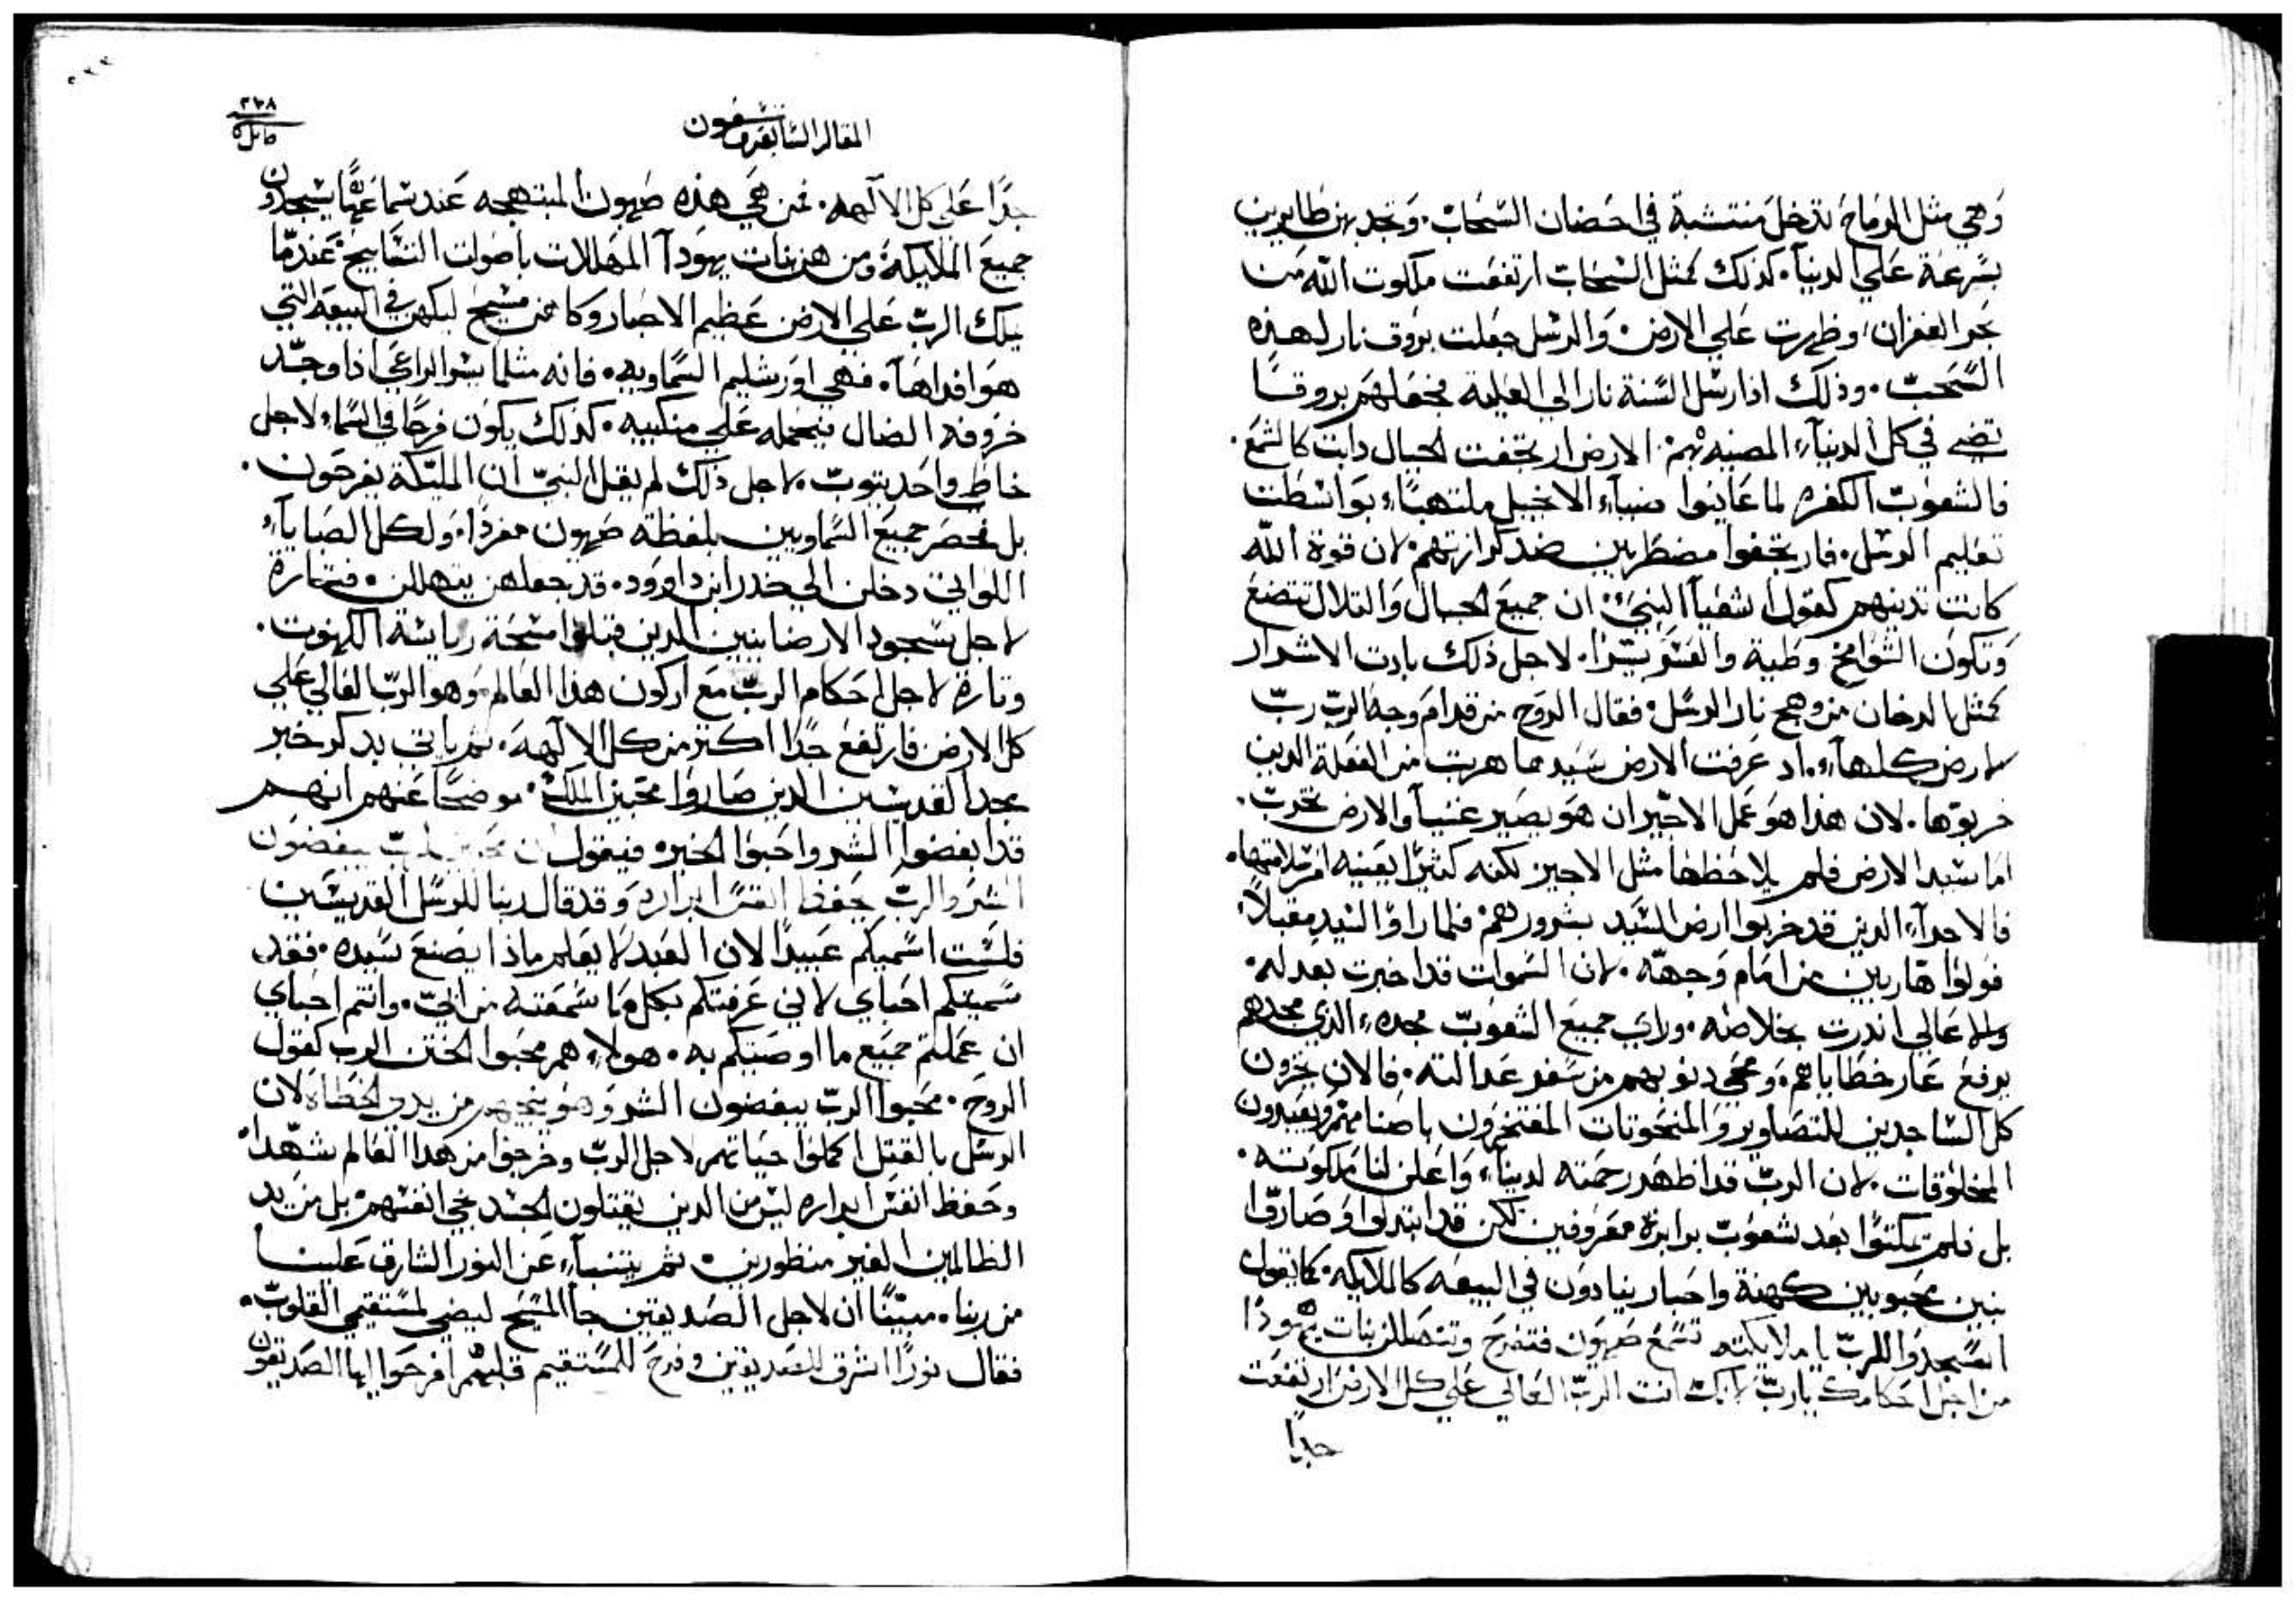 وَهي مثل الرماح تدخل منتشبة في احضان السّحاب. وَتجد بهن طايرين
بسَرعَة عَلي الدنيا. كذلك كمثل السّحاب ارتفعَت ملكوت الله من
بحر الغفران، وظهرت عَلي الارض. وَالرسل جعَلت بروق نار لهذه
السّحب. وذلك اذ ارسل السّنة نار الي العَلية فجعَلهم بروقًا
تضي في كل الدنيا، المضيه بهم. الارض ارتجفت الجبال دابت كالشمع.
فالشعوب الكفره لما عَاينوا ضياء الانجيل ملتهبًا، بواسَطت
تعليم الرسل. فارتجفوا مضطربين ضد كرازتهم. لان قوة الله
كانت تدينهم كقول اشعَيا النبي. ان جميع الجبال وَالتلال تتضع
وَتكون الشوامخ وَطية والعسَر يسَرا. لاجل ذلك بادت الاشرار
كمثل الدخان من وهج نار الرسل. فقال الروح من قدام وَجه الرب رب
الارض كلها. اد عَرفت الارض سَيدها هربت من الفعَلة الدين
خربوها. لان هذا هوَ عَمل الاجير ان هوَ يصَير غنيا والارض تخرب.
اما سَيد الارض فلم يلاحظها مثل الاجير لكنه كثيرًا يعَينه امر فلاحتها.
فالاجراء الدين قد خربوا ارض السَّيد بشرورهم. فلما راوا السَّيد مقبلاً،
فولوا هاربين من امام وَجهه. لان السَّموات قد اخبرت بعَدله.
والاعَالي اندرت بخلاصَه. وراي جميعَ الشعَوب مجده، الذي مجدهم
برفع عَار خطاياهم. وَمحي دنوبهم من سَفر عَدالته. فالان يخزون
كل السَّاجدين للتصَاوير وَالمنحوتات المفتخرون باصنامهم ويعَبدون
المخلوقات. لان الرب قد اظهر رحمته لدينا، وَاعَلن لنا ملكوته.
بل فلم تمكتوا بعَد شعَوب برابرة معَروفين لكن قد انتدلوا وَصَاروا
بنين محبوبين كهنة واحبار ينادون في البيعَه كالملايكه. كما يقول
اسَّجدوا للرب يا ملايكته تسَّمع صَهيون فتفرح وتتهلل بنات يهودا
من اجل احَكامك يارب لانك انت الرب العَالي عَلي كل الارض ارتفعَت
جدًا
المقاله السَّابعَه وتسَعون
٣٧٨
جدًا عَلي كل الالهه. فمن هي هذه صَهيون المبتهجه عَند سَماعها يسَجدون
جميعَ الملايكة. وَمن هن بنات يهودا المهللات باصوات التسَابيح. عَندما
يملك الرب عَلي الارض عَظيم الاحبار وَكاهن مسَيح ليكهن في البيعَه التي
هوَ افداها. فهي اوَرشليم السَّماويه. فانه مثلما يسَر الراعَي اذا وَجد
خروفه الضال يتحمله عَلي منكبيه. كذلك يكون فرحًا في السَّماء لاجل
خاطٍ واحَد يتوب. لاجل ذلك لم يقل النبي ان المليكة يفرحون.
بل حصر جميع السَّماويين بلفظة صَهيون مفردًا. وَلكل الصَبايا،
اللواتي دخلن الي خدر ابن داوَود. قد جعَلهن يتهللن. فتارة
لاجل سَجود الارضايين الدين قبلوا مسَحَة رياسَة الكهنوت.
وتارة لاجل احَكام الرب مَع اركون هذا العَالم. وَهو الرب العَالي عَلي
كل الارض فارتفع جدًا اكتر من كل الالهة. ثم ياتي بدكر خبر
مجد القديسَين الدين صَاروا محبين الملك. موضحًا عَنهم انهم
قد ابغضوا الشر واحَبوا الخير. فيقول محبين الرب يبغضون
الشر والرب يحَفظ انفس ابراره وَقد قال ربنا للرسَل القديسَين
فلسَت اسَميكم عَبيدًا لان العَبد لا يعَلم ماذا يصنعَ سَيده. فقد
سَميتكم احَباي لاني عَرفتكم بكل مَا سَمعَته من ابي. وانتم احباي
ان عَملتم جميعَ ما اوصَيتكم به. هولاء هم محبوا الختن الرب كقول
الروح. محَبوا الرب يبغضون الشر وَهو ينجيهم من يدي الخطاه لان
الرسَل بالقتل اكملوا حيَاتهم لاجل الرب وخرجوا من هدا العَالم شهدا.
وحَفظ انفس ابراره ليس من الدين يقتلون الجسَد نجي انفسَهم. بل من يد
الظالمين الغير منظورين. ثم يتنبا، عَن النور الشارق عَلينا
من ربنا. مبينًا ان لاجل الصَديقين جا المسَيح ليضي لمسَتقيمي القلوب.
فقال نورًا اشرق للصَديقين وفرح للمسَتقيم قلبهم افرحوا ايها الصَديقون